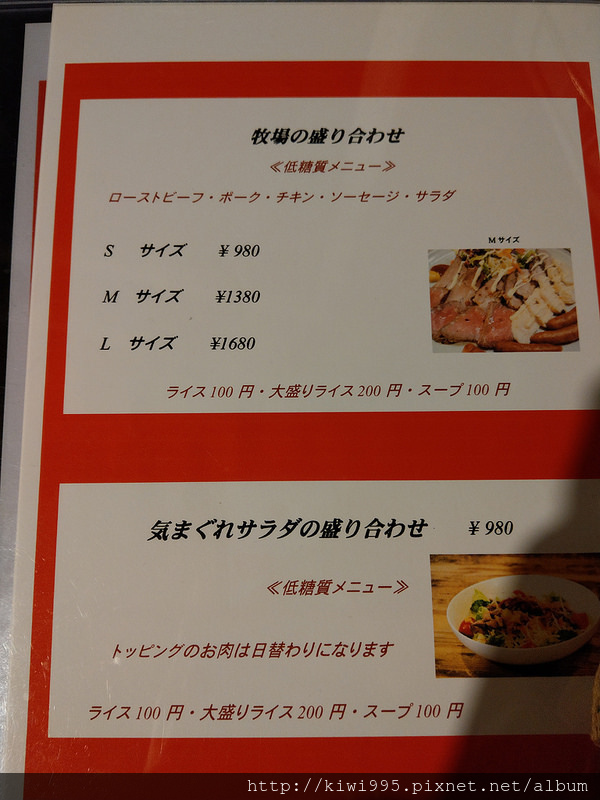 牧場の盛り合わせ
≪低糖質メニュー≫
ローストビーフ・ポーク・チキン・ソーセージ・サラダ
S サイズ ¥980
M サイズ
M サイズ ¥1380
L サイズ ¥1680
ライス100 円・大盛りライス200 円・スープ100 円
気まぐれサラダの盛り合わせ ¥980
≪低糖質メニュー≫
トッピングのお肉は日替わりになります
ライス100 円・大盛りライス200 円・スープ100 円
http://kiwi995.pixnet.net/album